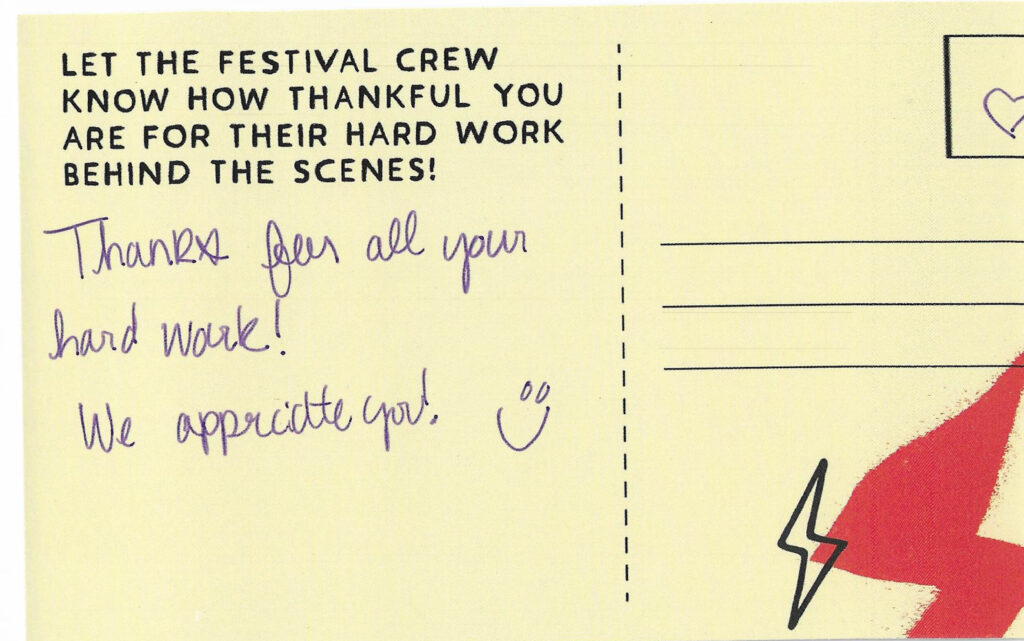 LET THE FESTIVAL CREW
KNOW HOW THANKFUL YOU
ARE FOR THEIR HARD WORK
BEHIND THE SCENES!
Thanks for all your
hard work!
We appriciate you!